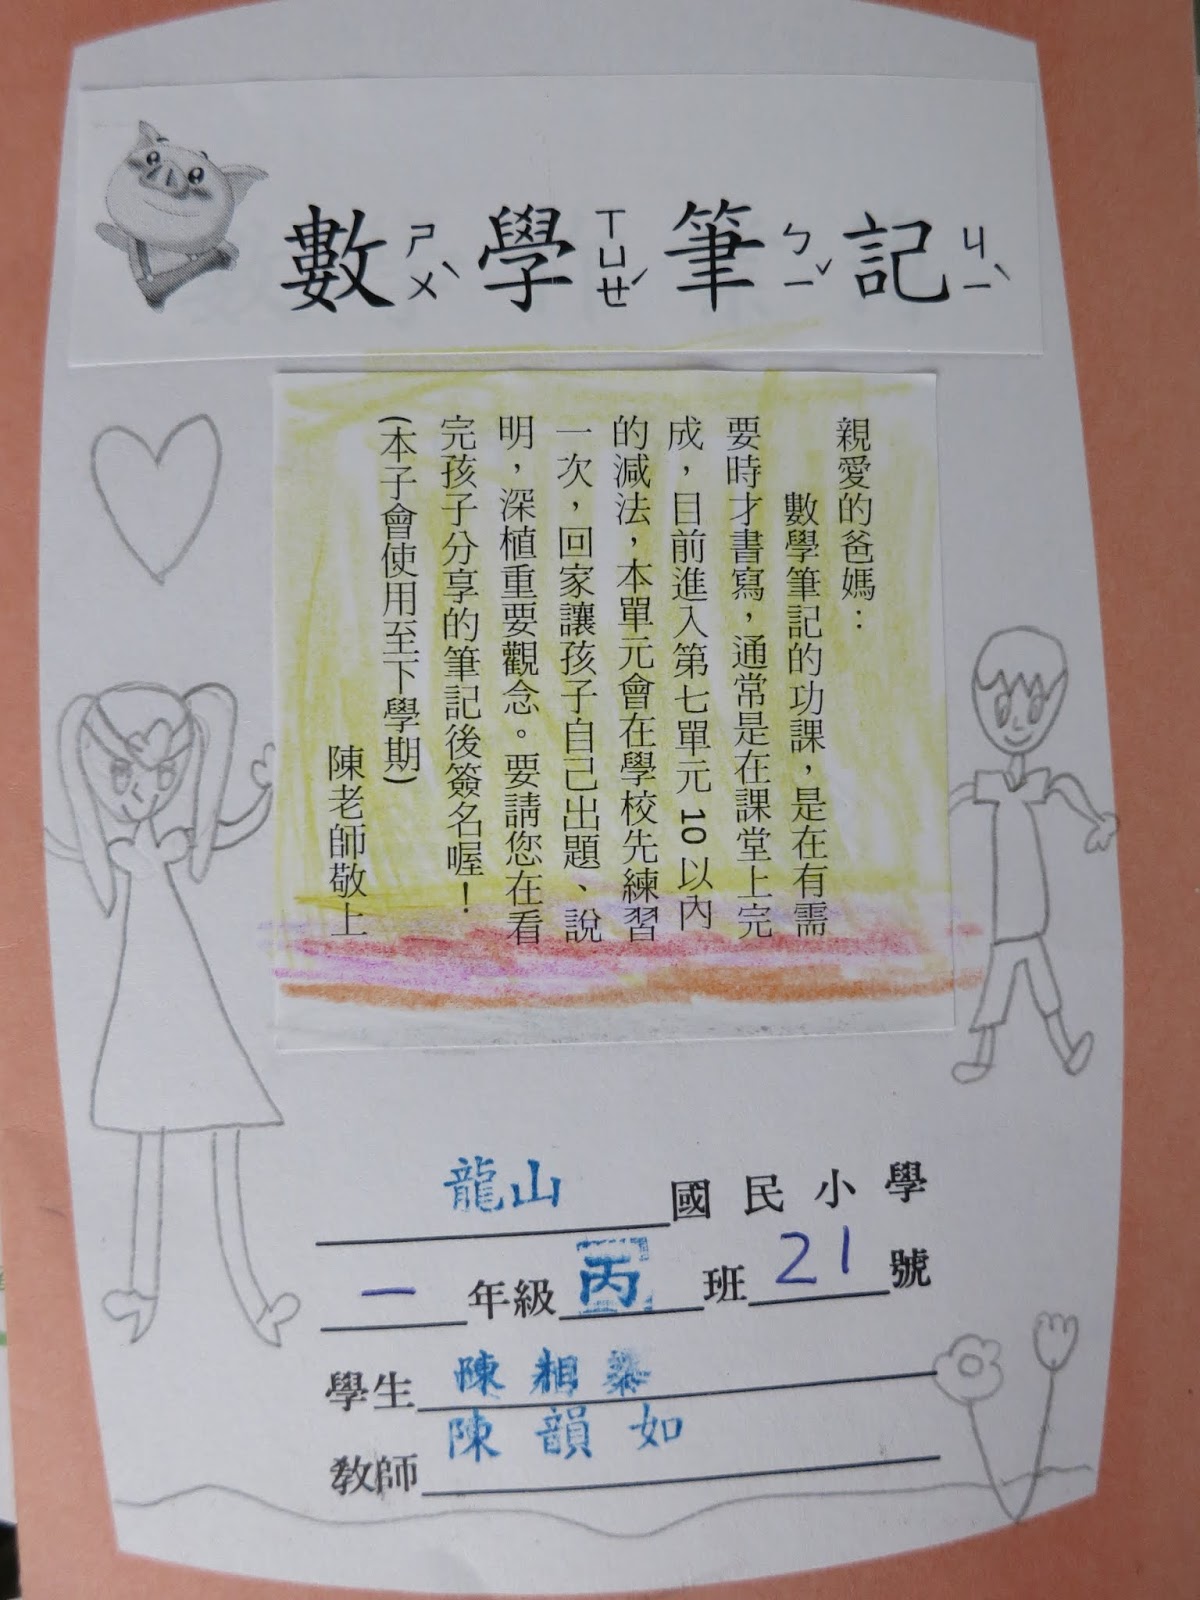 數ㄕㄨˋ學ㄒㄩㄝˊ筆ㄅㄧˇ記ㄐㄧˋ
親愛的爸媽：
數學筆記的功課，是在有需
要時才書寫，通常是在課堂上完
成，目前進入第七單元10以內
的減法，本單元會在學校先練習
一次，回家讓孩子自己出題、說
明，深植重要觀念。要請您在看
完孩子分享的筆記後簽名喔！
(本子會使用至下學期)
陳老師敬上
龍山國民小學
一年級丙班21號
學生 陳相
教師 陳韻如